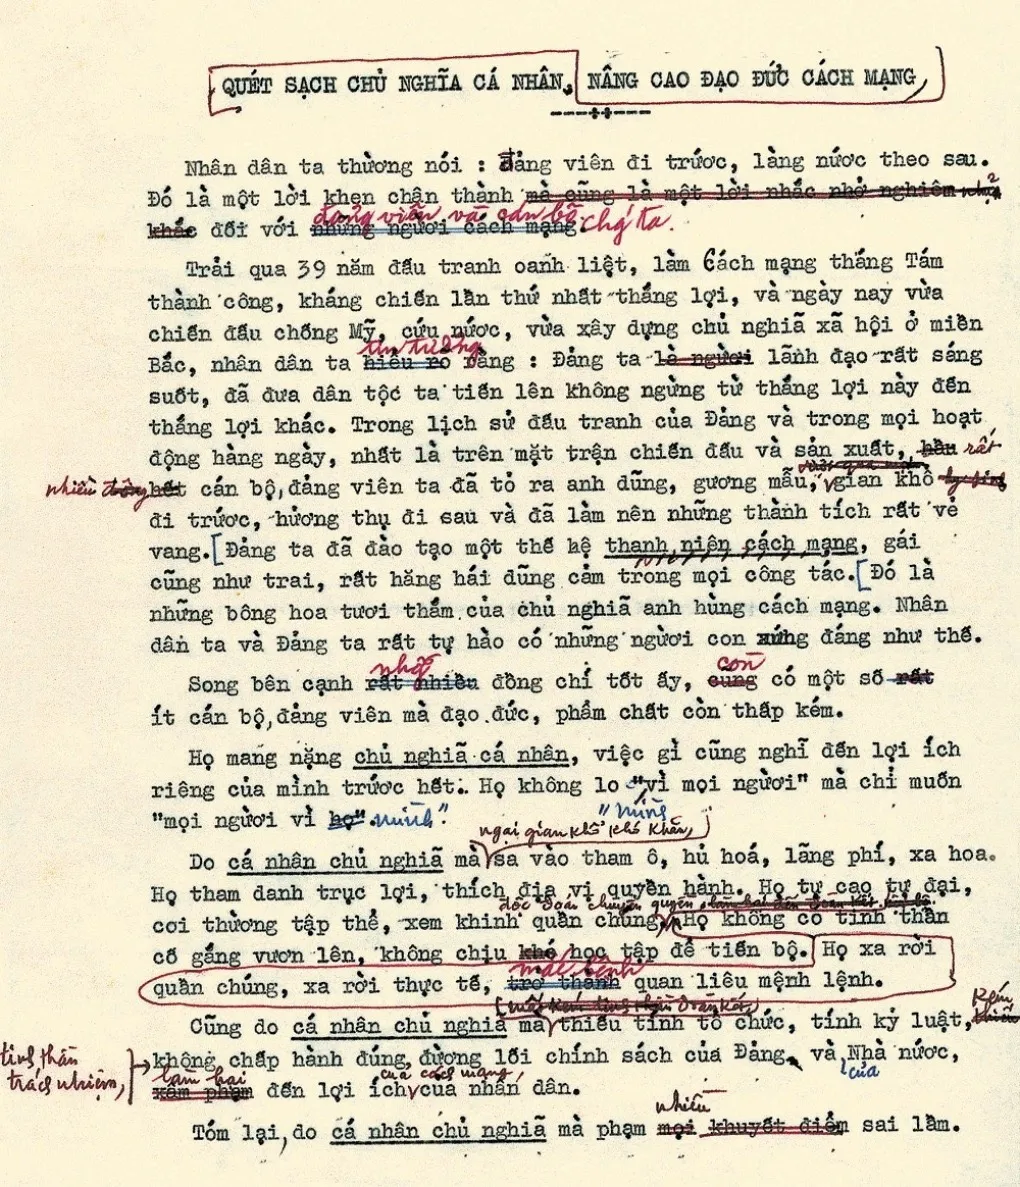 QUÉT SẠCH CHỦ NGHĨA CÁ NHÂN, NÂNG CAO ĐẠO ĐỨC CÁCH MẠNG,
---++---
Nhân dân ta thường nói : đảng viên đi trước, làng nước theo sau.
Đó là một lời khen chận thành mà cũng là một lời nhắc nhở nghiêm
đảng viên và cán bộ chúng ta.
khắc đối với những người cách mạng.
Trải qua 39 năm đấu tranh oanh liệt, làm Cách mạng tháng Tám
thành công, kháng chiến lần thứ nhất thắng lợi, và ngày nay vừa
chiến đấu chống Mỹ, cứu nước, vừa xây dựng chủ nghĩa xã hội ở miền
tin tưởng
Bắc, nhân dân ta hiểu rõ rằng : Đảng ta là người lãnh đạo rất sáng
suốt, đã đưa dân tộc ta tiến lên không ngừng từ thắng lợi này đến
thắng lợi khác. Trong lịch sử đấu tranh của Đảng và trong mọi hoạt
động hàng ngày, nhất là trên mặt trận chiến đấu và sản xuất, hầu rất
nhiều hết cán bộ, đảng viên ta đã tỏ ra anh dũng, gương mẫu, gian khổ
đi trước, hưởng thụ đi sau và đã làm nên những thành tích rất vẻ
vang. [Đảng ta đã đào tạo một thế hệ thanh niên cách mạng, gái
cũng như trai, rất hăng hái dũng cảm trong mọi công tác. [Đó là
những bông hoa tươi thắm của chủ nghĩa anh hùng cách mạng. Nhân
dân ta và Đảng ta rất tự hào có những người con xứng đáng như thế.
những còn
Song bên cạnh rất nhiều đồng chí tốt ấy, cũng có một số rất
ít cán bộ, đảng viên mà đạo đức, phẩm chất còn thấp kém.
Họ mang nặng chủ nghĩa cá nhân, việc gì cũng nghĩ đến lợi ích
riêng của mình trước hết. Họ không lo "vì mọi người" mà chỉ muốn
"mọi người vì họ". mình". "mình
ngại gian khổ khó khăn,
Do cá nhân chủ nghĩa mà sa vào tham ô, hủ hoá, lãng phí, xa hoa.
Họ tham danh trục lợi, thích địa vị quyền hành. Họ tự cao tự đại,
độc đoán chuyên quyền,
coi thường tập thể, xem khinh quần chúng, Họ không có tinh thần
cố gắng vươn lên, không chịu khó học tập để tiến bộ. Họ xa rời
mắc bệnh
quần chúng, xa rời thực tế, trở thành quan liêu mệnh lệnh.
mất đoàn kết,
Cũng do cá nhân chủ nghĩa mà thiếu tính tổ chức, tính kỷ luật, kém
tinh thần trách nhiệm,
không chấp hành đúng đường lối chính sách của Đảng và Nhà nước,
làm hại của cách mạng, của
xâm phạm đến lợi ích của nhân dân.
nhiều
Tóm lại, do cá nhân chủ nghĩa mà phạm mọi khuyết điểm sai lầm.